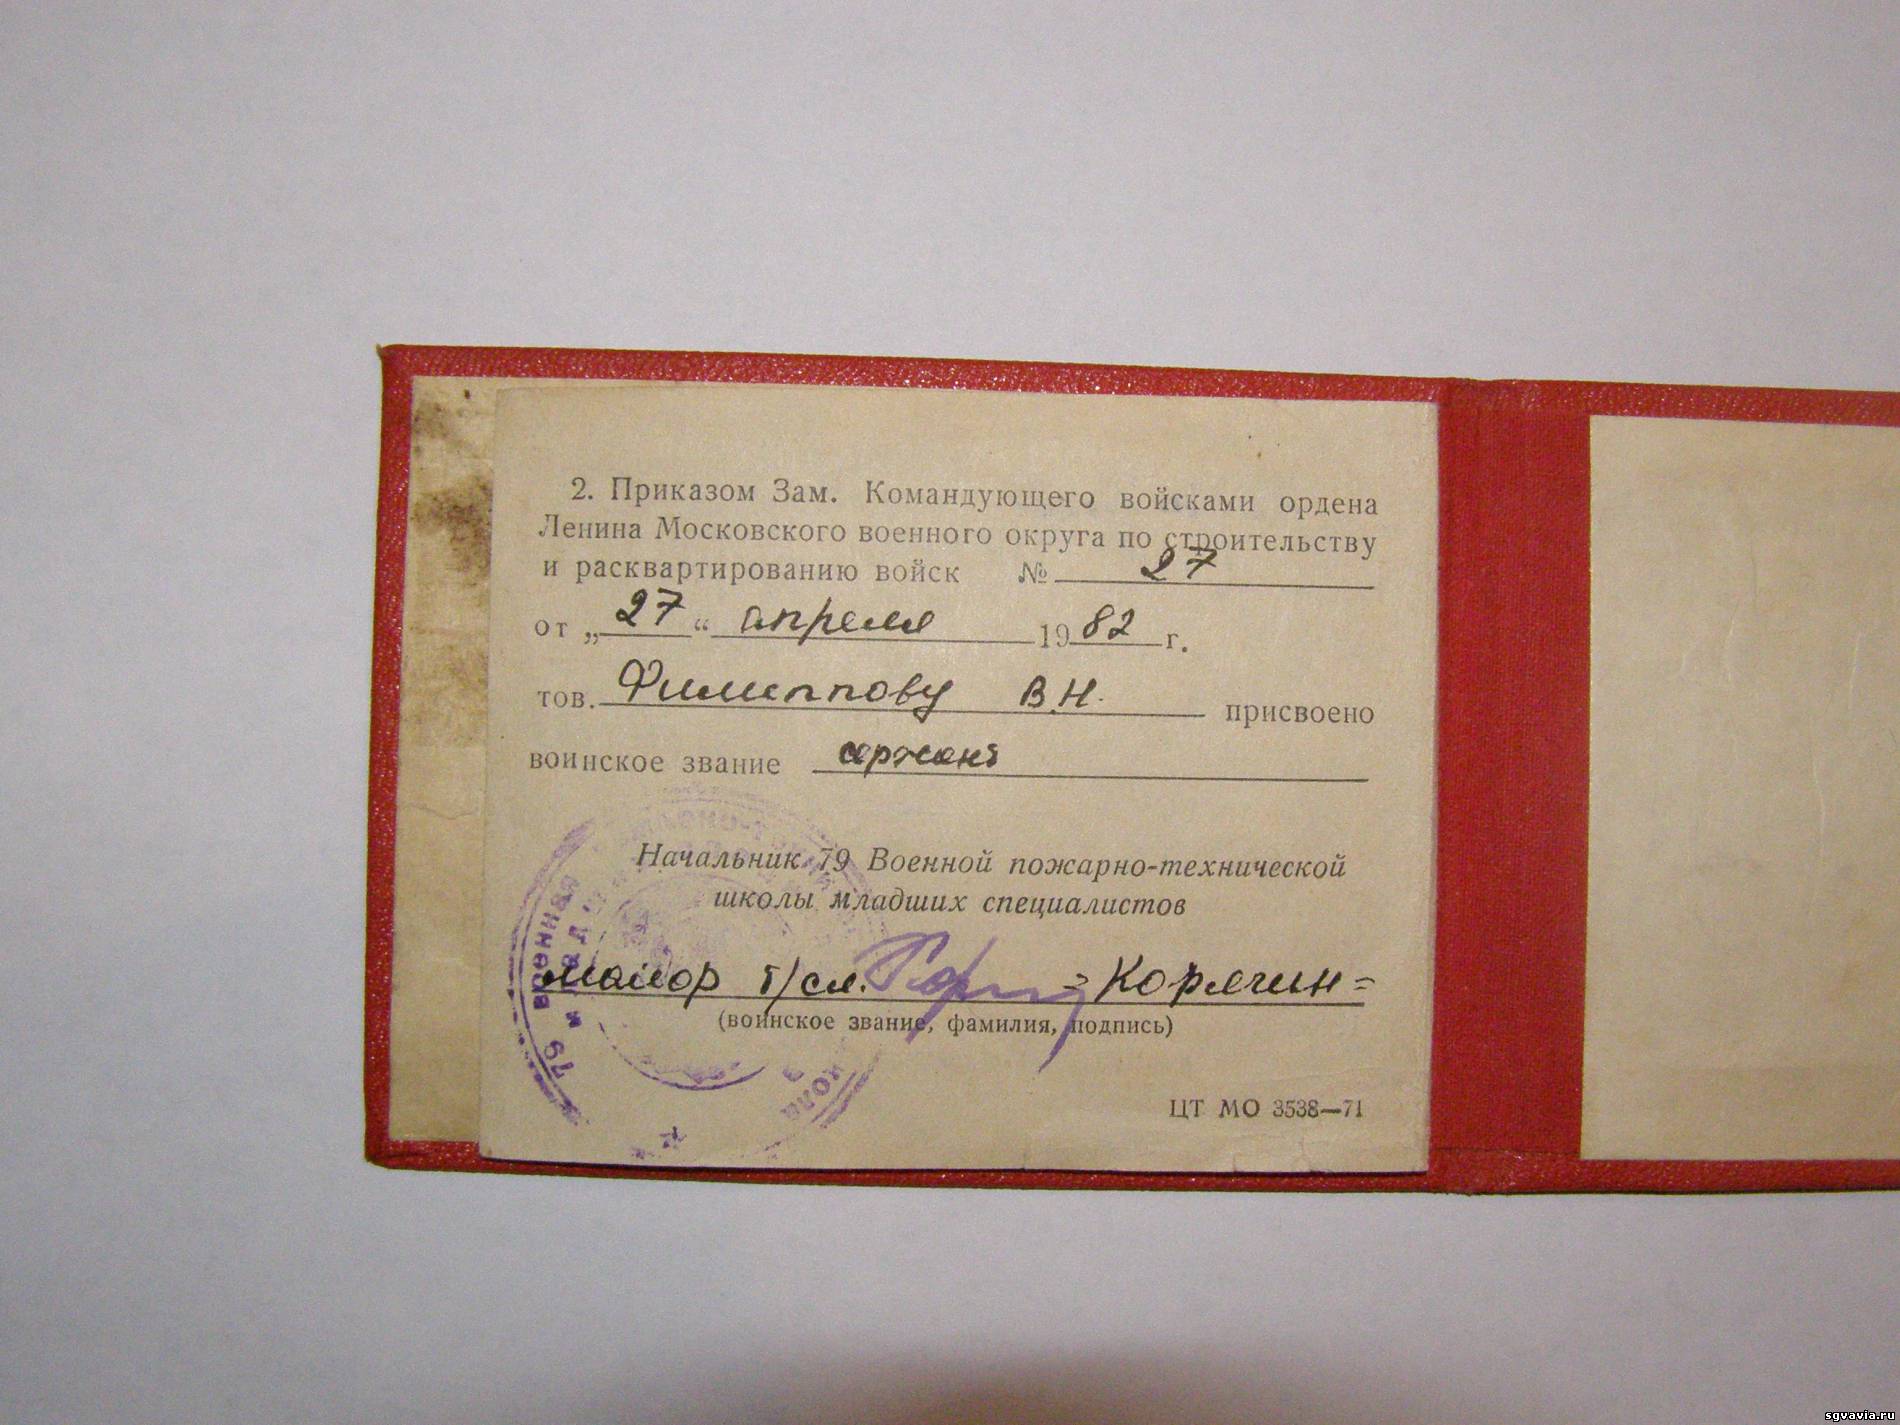 2. Приказом Зам. Командующего войсками ордена
Ленина Московского военного округа по строительству
и расквартированию войск № 27
от „27“ апреля 1982 г.
тов. Филиппову В.Н. присвоено
воинское звание сержант
Начальник 79 Военной пожарно-технической
школы младших специалистов
майор т/сл. =Корягин=
(воинское звание, фамилия, подпись)
ЦТ МО 3538—71
79 военная
sgvavia.ru